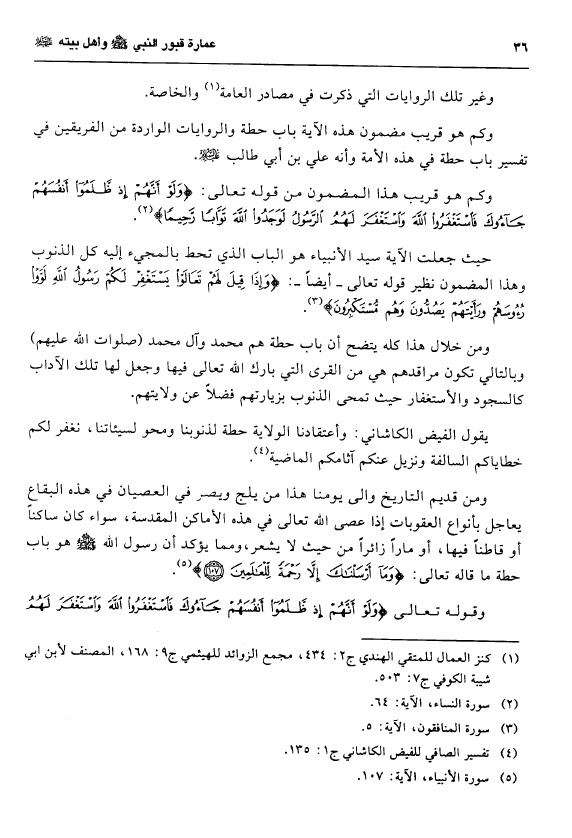 ٣٦
عمارة قبور النبي ﷺ وأهل بيته
وغير تلك الروايات التي ذكرت في مصادر العامة(١) والخاصة.
وكم هو قريب مضمون هذه الآية باب حطة والروايات الواردة من الفريقين في
تفسير باب حطة في هذه الأمة وأنه علي بن أبي طالب
وكم هو قريب هذا المضمون من قوله تعالى: ﴿وَلَوْ أَنَّهُمْ إِذ ظَّلَمُوٓا۟ أَنفُسَهُمْ
جَآءُوكَ فَٱسْتَغْفَرُوا۟ ٱللَّهَ وَٱسْتَغْفَرَ لَهُمُ ٱلرَّسُولُ لَوَجَدُوا۟ ٱللَّهَ تَوَّابًا رَّحِيمًا﴾(٢).
حيث جعلت الآية سيد الأنبياء هو الباب الذي تحط بالمجيء إليه كل الذنوب
وهذا المضمون نظير قوله تعالى ـ أيضاً ـ: ﴿وَإِذَا قِيلَ لَهُمْ تَعَالَوْا۟ يَسْتَغْفِرْ لَكُمْ رَسُولُ ٱللَّهِ لَوَّوْا۟
رُءُوسَهُمْ وَرَأَيْتَهُمْ يَصُدُّونَ وَهُم مُّسْتَكْبِرُونَ﴾(٣).
ومن خلال هذا كله يتضح أن باب حطة هم محمد وآل محمد (صلوات الله عليهم)
وبالتالي تكون مراقدهم هي من القرى التي بارك الله تعالى فيها وجعل لها تلك الآداب
كالسجود والأستغفار حيث تمحى الذنوب بزيارتهم فضلاً عن ولايتهم.
يقول الفيض الكاشاني: وأعتقادنا الولاية حطة لذنوبنا ومحو لسيئاتنا، نغفر لكم
خطاياكم السالفة ونزيل عنكم آثامكم الماضية(٤).
ومن قديم التاريخ والى يومنا هذا من يلج ويصر في العصيان في هذه البقاع
يعاجل بأنواع العقوبات إذا عصى الله تعالى في هذه الأماكن المقدسة، سواء كان ساكناً
أو قاطناً فيها، أو ماراً زائراً من حيث لا يشعر،ومما يؤكد أن رسول الله ﷺ هو باب
حطة ما قاله تعالى: ﴿وَمَآ أَرْسَلْنَٰكَ إِلَّا رَحْمَةً لِّلْعَٰلَمِينَ ١٠٧﴾(٥).
وقوله تعالى ﴿وَلَوْ أَنَّهُمْ إِذ ظَّلَمُوٓا۟ أَنفُسَهُمْ جَآءُوكَ فَٱسْتَغْفَرُوا۟ ٱللَّهَ وَٱسْتَغْفَرَ لَهُمُ
(١) كنز العمال للمتقي الهندي ج٢: ٤٣٤، مجمع الزوائد للهيثمي ج٩: ١٦٨، المصنف لأبن ابي
شيبة الكوفي ج٧: ٥٠٣.
(٢) سورة النساء، الآية: ٦٤.
(٣) سورة المنافقون، الآية: ٥.
(٤) تفسير الصافي للفيض الكاشاني ج١: ١٣٥.
(٥) سورة الأنبياء، الآية: ١٠٧.